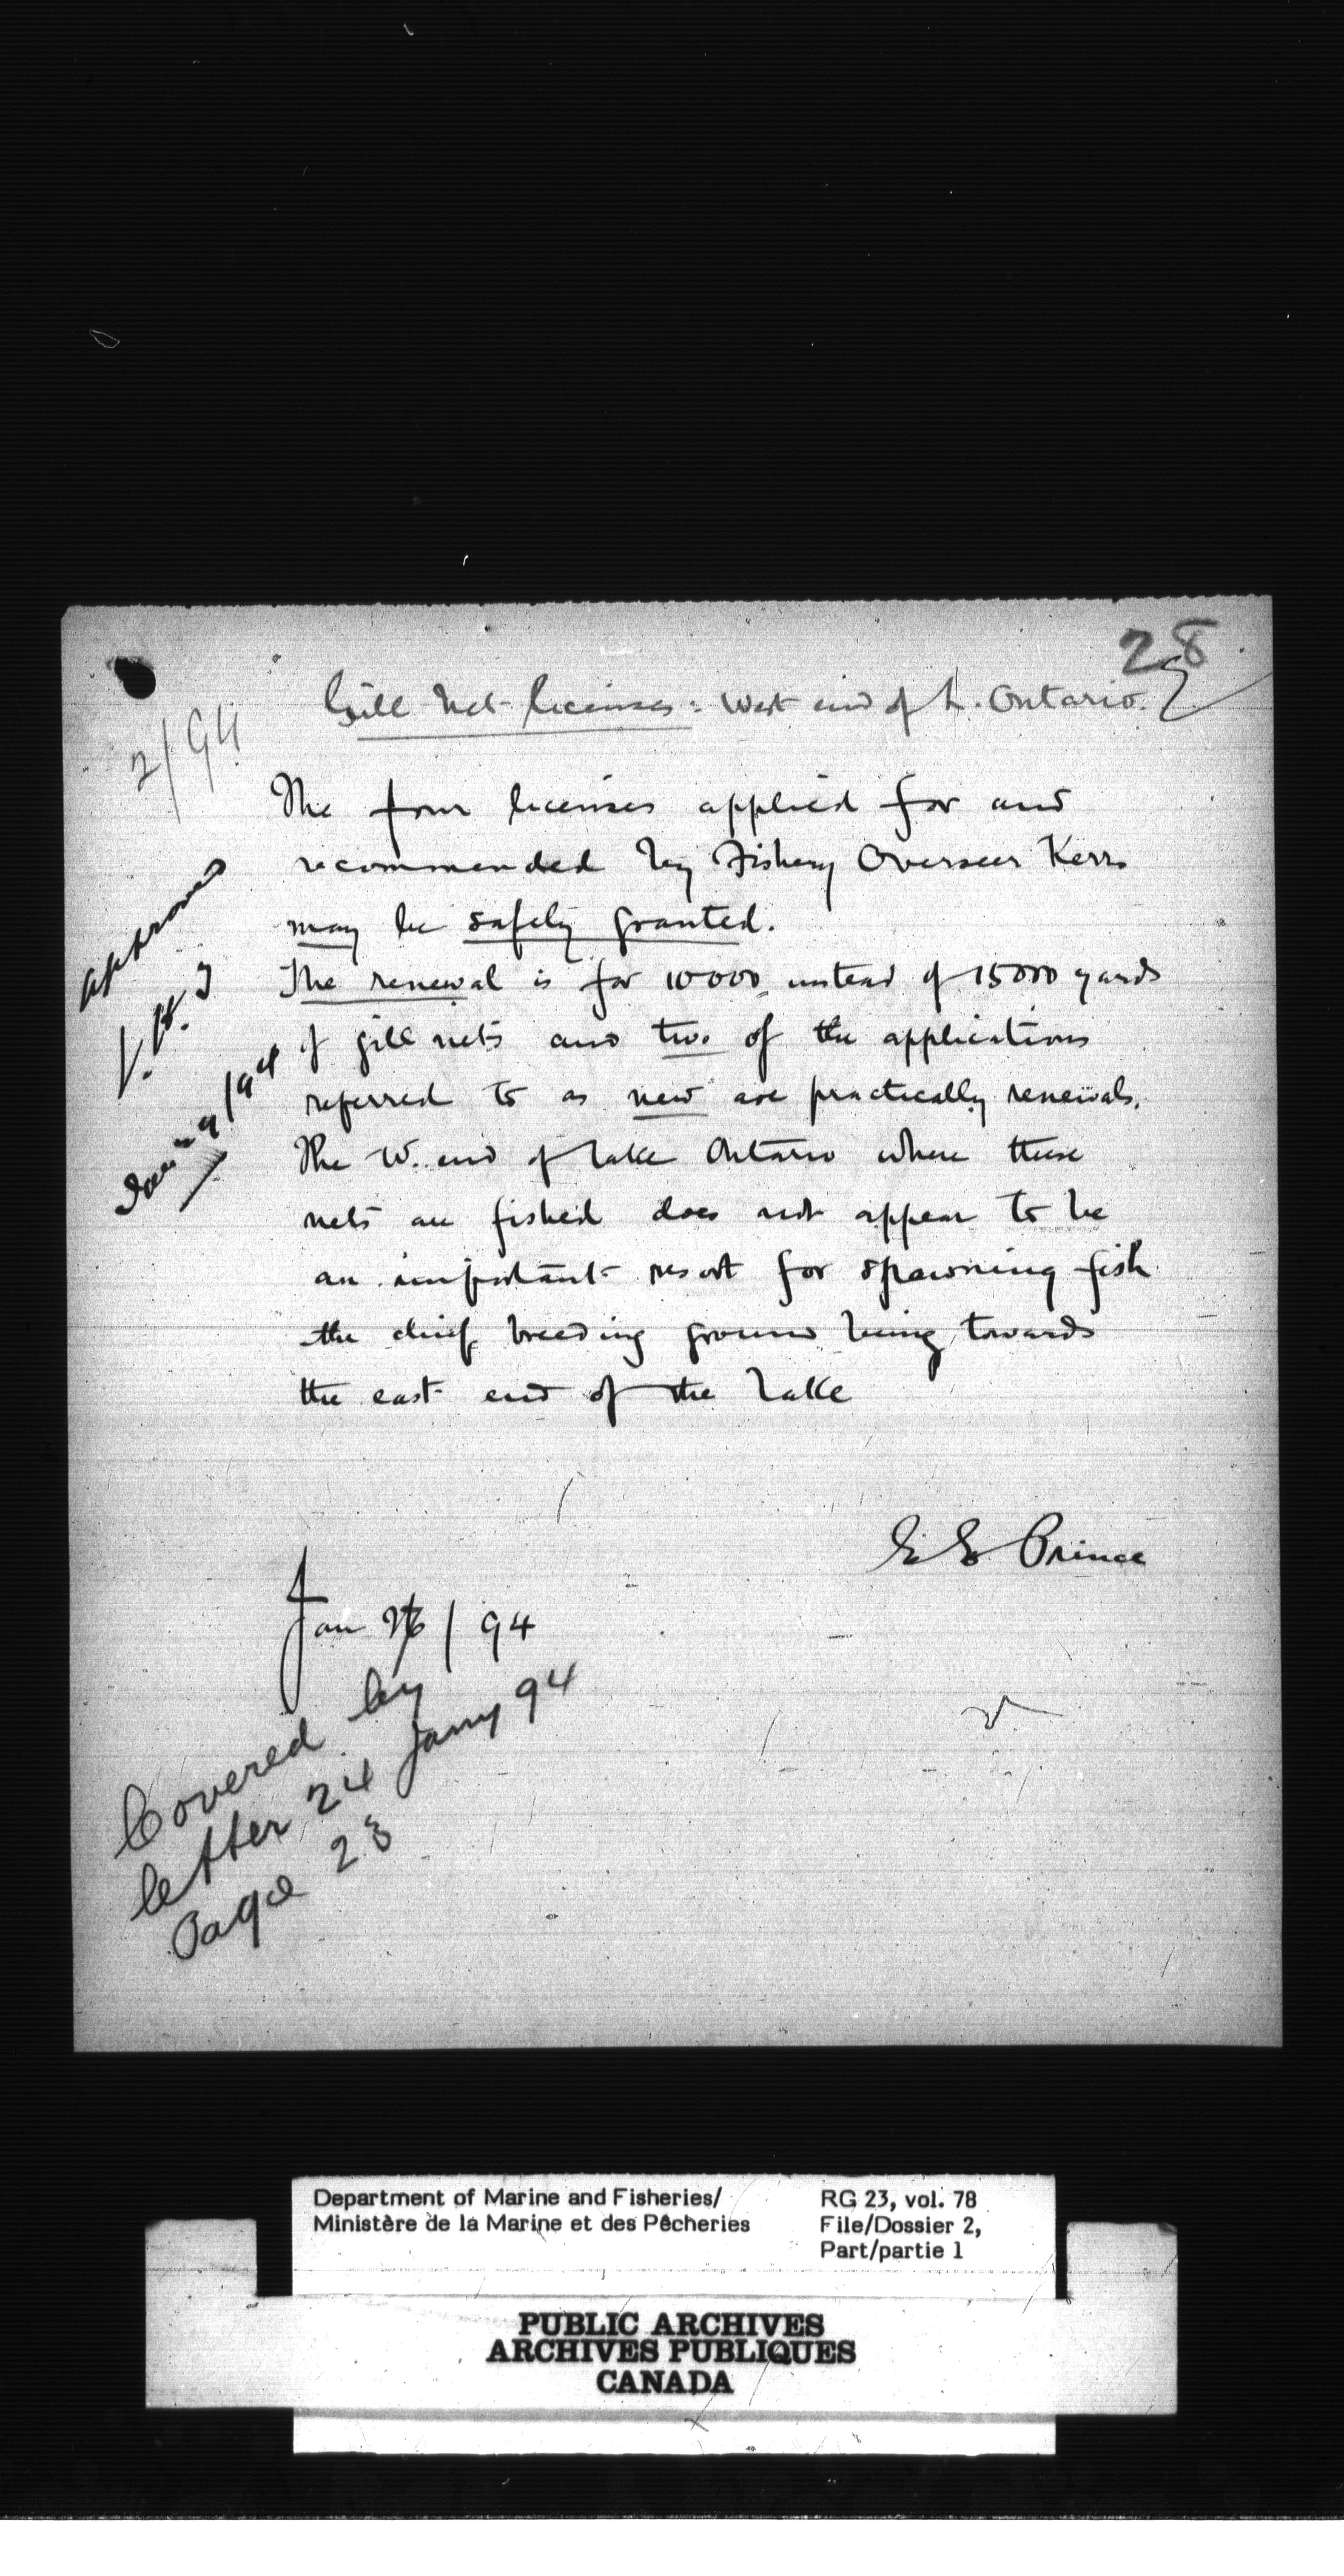 28
Gill Net Licenses: West end of L. Ontario.
2/94
The four licenses applied for and
recommended by Fishery Overseer Kerr
may be safely granted.
The renewal is for 10000 instead of 15000 yards
of gill nets and two of the applications
referred to as new are practically renewals.
The W. end of Lake Ontario where these
nets are fished does not appear to be
an important resort for spawning fish
the chief breeding ground being towards
the east end of the Lake
approved
E E Prince
Jan / 94
Covered by
letter 24 Jany 94
Page 23
Department of Marine and Fisheries/
Ministère de la Marine et des Pêcheries
RG 23, vol. 78
File/Dossier 2,
Part/partie 1
PUBLIC ARCHIVES
ARCHIVES PUBLIQUES
CANADA